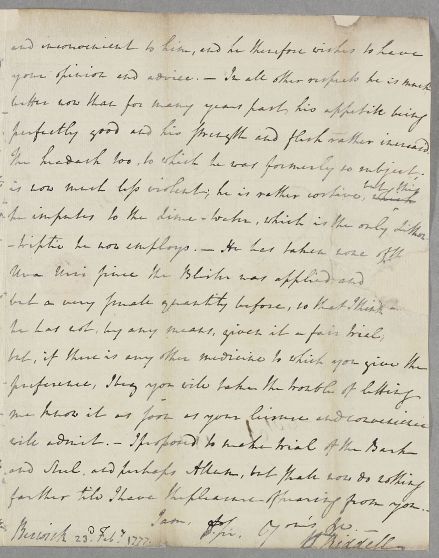 and inconvenient to him, and he therefore wishes to have
your opinion and advice. — In all other respects he is much
better now than for many years past, his appetite being
perfectly good and his strength and flesh rather increased.
The headach too, to which he was formerly so subject,
is now much less violent; he is rather costive, but this
he imputes to the Lime-water, which is the only Lithon-
-triptic he now employs. — He has taken none of the
Uva Ursi since the Blister was applied and
but a very small quantity before, so that I think
he has not, by any means, given it a fair trial;
but, if there is any other medicine to which you give the
preference, I beg you will take the trouble of letting
me know it as soon as your leisure and convenience
will admit. — I proposed to make trial of the Bark
and Steel, and perhaps Alum, but shall now do nothing
farther till I have the pleasure of hearing from you. —
I am, Sir, Yours &c
Berwick 23d. Feby. 1777. Riddell